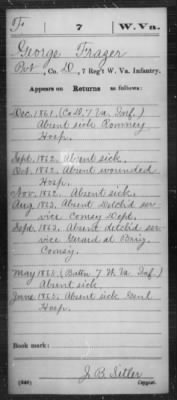 F 7 W.Va.
George Frazer
Pvt, Co. D, 7 Reg't W. Va. Infantry.
Appears on Returns as follows:
Dec. 1861. (Co D. 7 Va. Inf.)
Absent sick Romney
Hosp.
Sept. 1862. Absent sick.
Oct. 1862. Absent wounded
Hosp.
Nov. 1862. Absent sick.
Aug 1863. Absent Detchd ser
vice Comsy Dept.
Sept. 1863. Absent detchd ser
vice Guard at Brig.
Comsy.
May 1865 (Battn 7 W. Va. Inf.)
Absent sick.
June 1865. Absent sick Genl
Hosp.
Book mark:
J. B. Sitler
(546) Copyist.